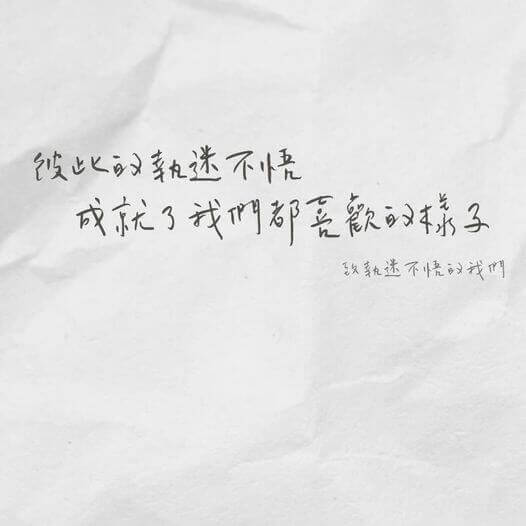 彼此的執迷不悟
成就了我們都喜歡的樣子
致執迷不悟的我們